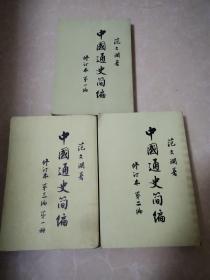 范文澜著
中國通史简编
修订本 第一编
范文澜著
中國通史简编
修订本 第三编 第一册
范文澜著
中國通史简编
修订本 第二编